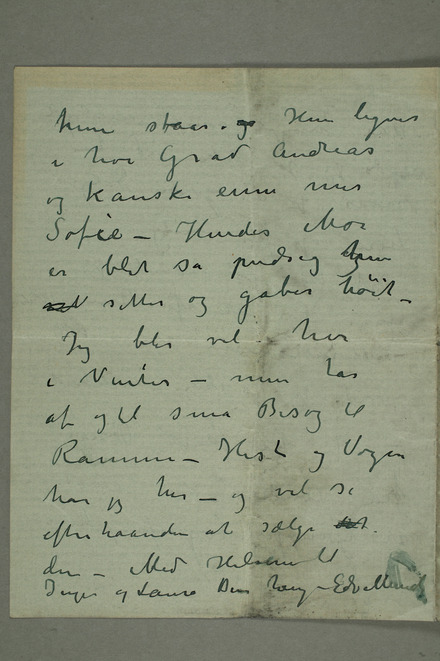 hun staar. og Hun ligner
i høi Grad Andreas
og kanske ennu mer
Sofie – Hendes Mor
er blet så pudsig hun
sitter og gaber höit –
Jeg blir vel her
i Vinter – men tar
af og til små Besøg til
Ramme – Hest og Vogn
har jeg her – og vil se
efterhaanden at sælge
den – Med Hilsen til
Inger og Laura Din heng – Edv Munch